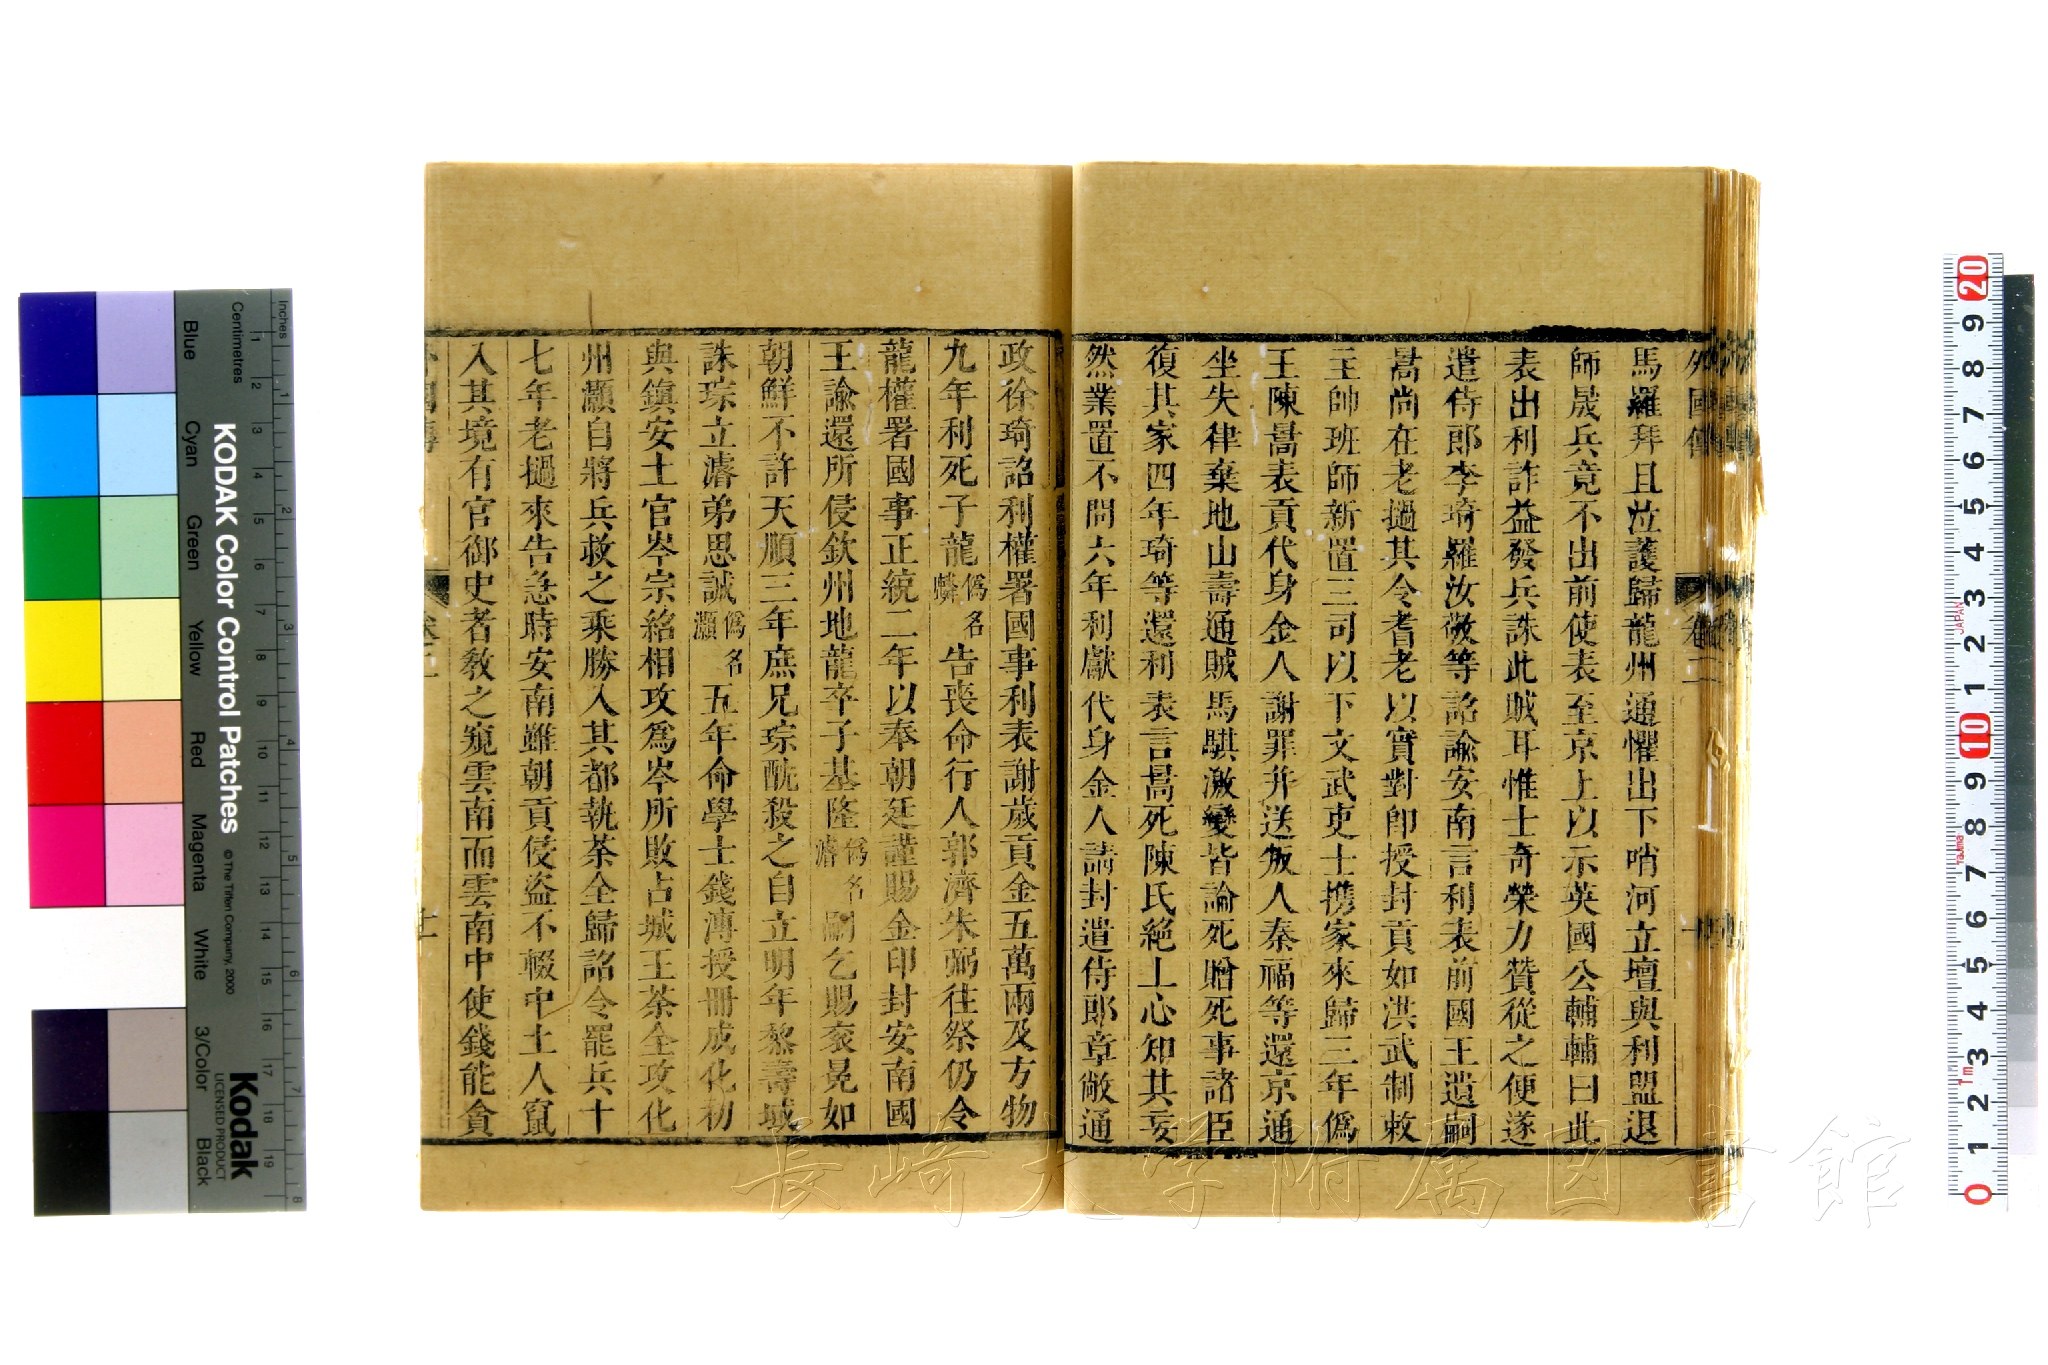 外國傳 卷二 十
馬羅拜且泣護歸龍州通懼出下哨河立壇與利盟退
師晟兵竟不出前使表至京上以示英國公輔輔曰此
表出利詐益發兵誅此賊耳惟士奇榮力贊從之便遂
遣侍郎李琦羅汝敬等詔諭安南言利表前國王遺嗣
暠尚在老撾其令耆老以實對即授封貢如洪武制敕
主帥班師新置三司以下文武吏士携家來歸三年僞
王陳暠表貢代身金人謝罪并送叛人秦福等還京通
坐失律棄地山壽通賊馬騏激變皆論死贈死事諸臣
復其家四年琦等還利表言暠死陳氏絕上心知其妄
然業置不問六年利獻代身金人請封遣侍郎章敞通
政徐琦詔利權署國事利表謝歲貢金五萬兩及方物
九年利死子龍僞名麟告喪命行人郭濟朱弼往祭仍令
龍權署國事正統二年以奉朝廷謹賜金印封安南國
王諭還所侵欽州地龍卒子基隆僞名濬嗣乞賜衮冕如
朝鮮不許天順三年庶兄琮酖殺之自立明年黎壽域
誅琮立濬弟思誠僞名灝五年命學士錢溥授冊成化初
與鎮安土官岑宗紹相攻爲岑所敗占城王茶全攻化
州灝自將兵救之乘勝入其都執茶全歸詔令罷兵十
七年老撾來告急時安南雖朝貢侵盜不輟中土人竄
入其境有官御史者敎之窺雲南而雲南中使錢能貪
外國傳 卷二 十一
KODAK Color Control Patches
© The Tiffen Company, 2000
Kodak
LICENSED PRODUCT
Inches
Centimetres
Blue
Cyan
Green
Yellow
Red
Magenta
White
3/Color
Black
1 2 3 4 5 6 7 8 9 10 11 12 13 14 15 16 17 18 19
1 2 3 4 5 6 7 8
20 9 8 7 6 5 4 3 2 1 10 9 8 7 6 5 4 3 2 1 0
JAPAN
Tajima
1m
長崎大学附属図書館